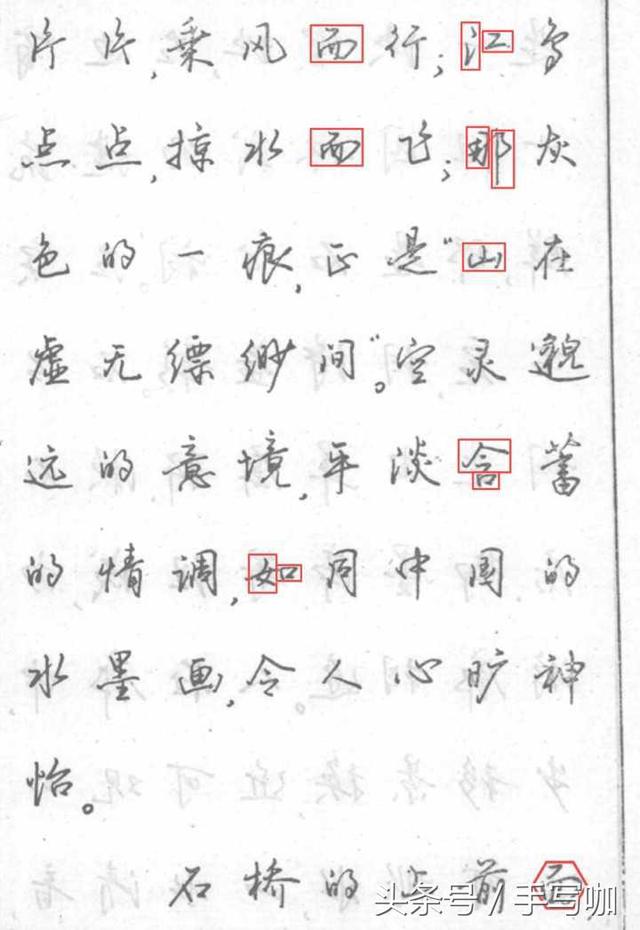 片片,乘风而行;江鸟
点点,掠水而飞;那灰
色的一痕,正是“山在
虚无缥缈间”。空灵邈
远的意境,平淡含蓄
的情调,如同中国的
水墨画,令人心旷神
怡。
石桥的正前面
头条号／手写咖